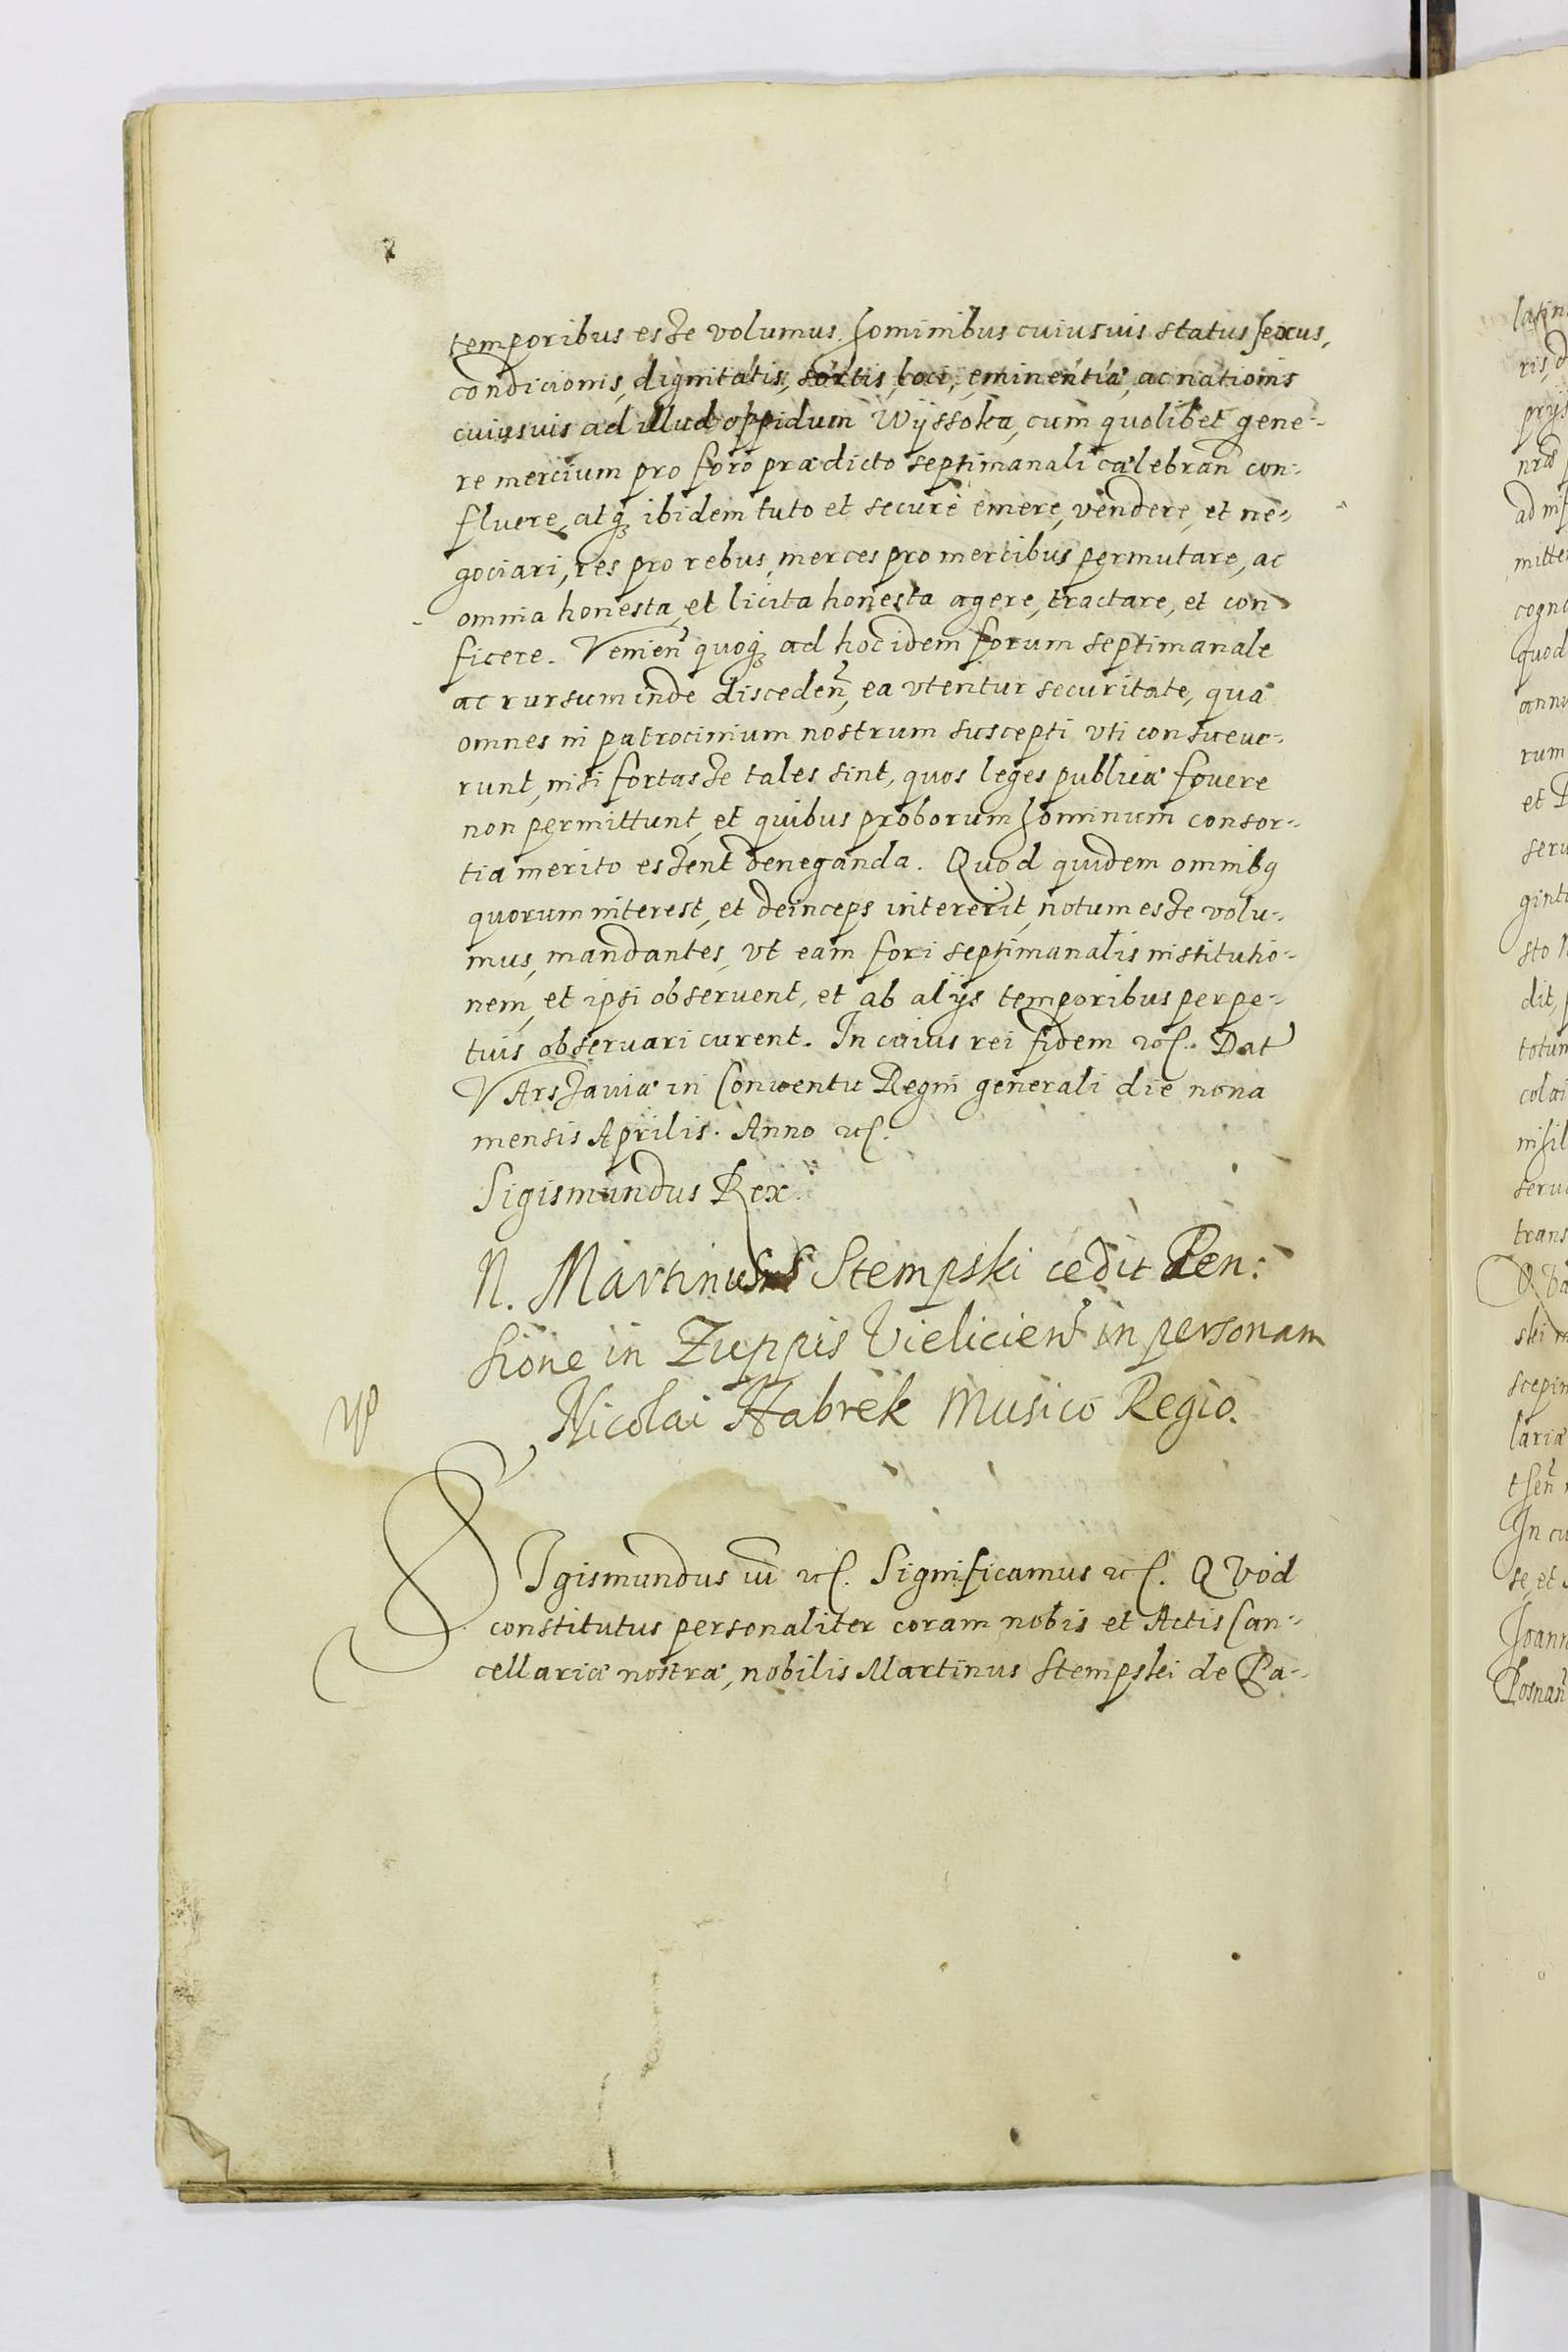 temporibus esse volumus. hominibus cuiusuis status sexus,
condicionis, dignitatis, sortis, loci, eminentiæ, ac nationis
cuiusuis ad illud oppidum Wÿssoka, cum quolibet gene-
re mercium pro foro prædicto septimanali cælebran con-
fluere, atq3 ibidem tuto et securè emere, vendere, et ne-
gociari, res pro rebus, merces pro mercibus permutare, ac
omnia honesta, et licita honesta agere, tractare, et con
ficere. Venien quoq3 ad hoc idem forum septimanale
ac rursum inde disceden, ea vtentur securitate, qua
omnes in patrocinium nostrum suscepti vti consueue-
runt, nisi fortasse tales sint, quos leges publicæ fouere
non permittunt, et quibus proborum hominum consor-
tia merito essent deneganda. Quod quidem omnibq
quorum interest, et deinceps intererit, notum esse volu-
mus, mandantes, vt eam fori septimanalis institutio-
nem, et ipsi obseruent, et ab alijs temporibus perpe-
tuis obseruari curent. In cuius rei fidem etc. Dat
VArsſauiæ in Conuentu Regni generali die nona
mensis Aprilis. Anno etc.
Sigismundus Rex.
N. Martinus Stempski cedit Pen:
sione in Zuppis Vielicien in personam
Nicolai Habrek Musico Regio.
SIgismundus iii etc. Significamus etc. QVod
constitutus personaliter coram nobis et Actis Can-
cellariæ nostræ, nobilis Martinus Stempski de Pa-